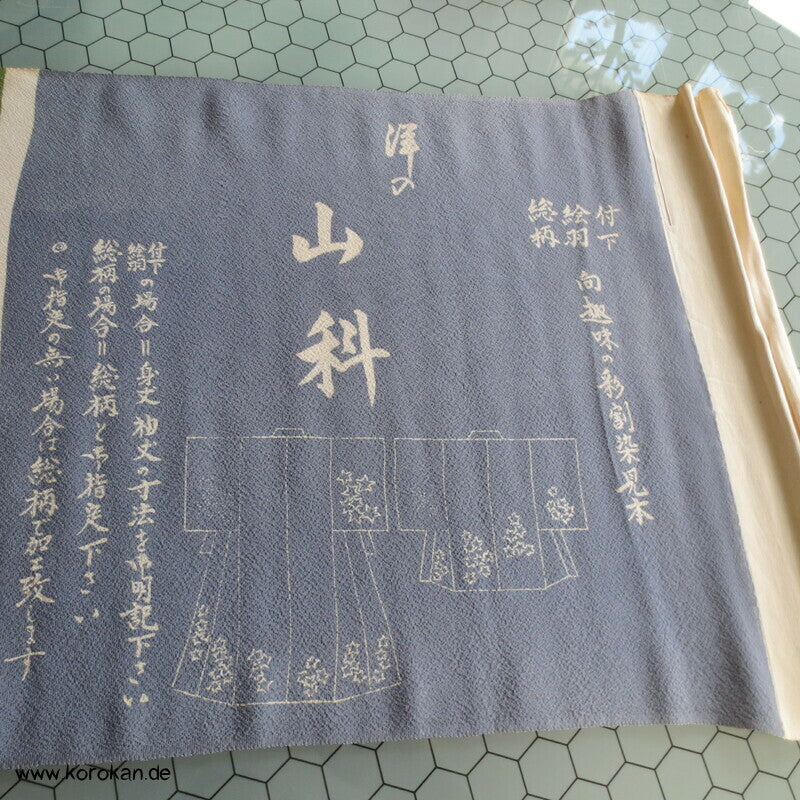 付下
絵羽
総柄
向趣味の彩割染見本
渾の
山科
付下
絵羽の場合=身丈袖丈の寸法を御明記下さい
総柄の場合=総柄と御指定下さい
◎御指定の無い場合は総柄で加工致します
www.korokan.de